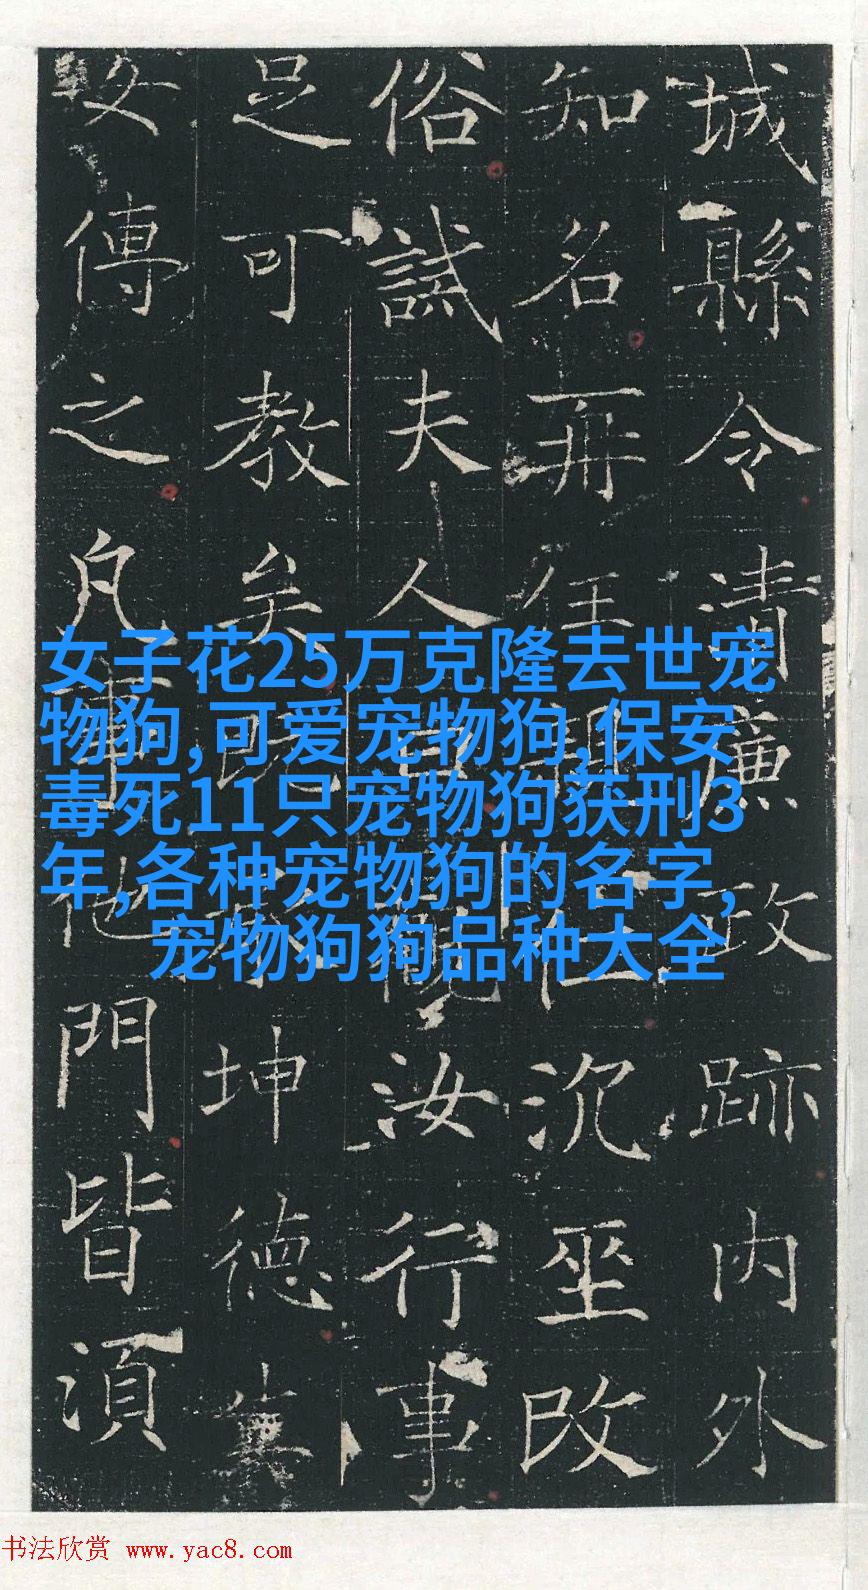 城縣令清廉政跡内外
知名再任朝仕沉坐改
俗誠夫人曰觀汝行事
足可教矣坤德
安傳之凡事他門皆須
女子花25万克隆去世宠
物狗,可爱宠物狗,保安
毒死11只宠物狗获刑3
年,各种宠物狗的名字,
宠物狗狗品种大全
书法欣赏 www.yac8.com